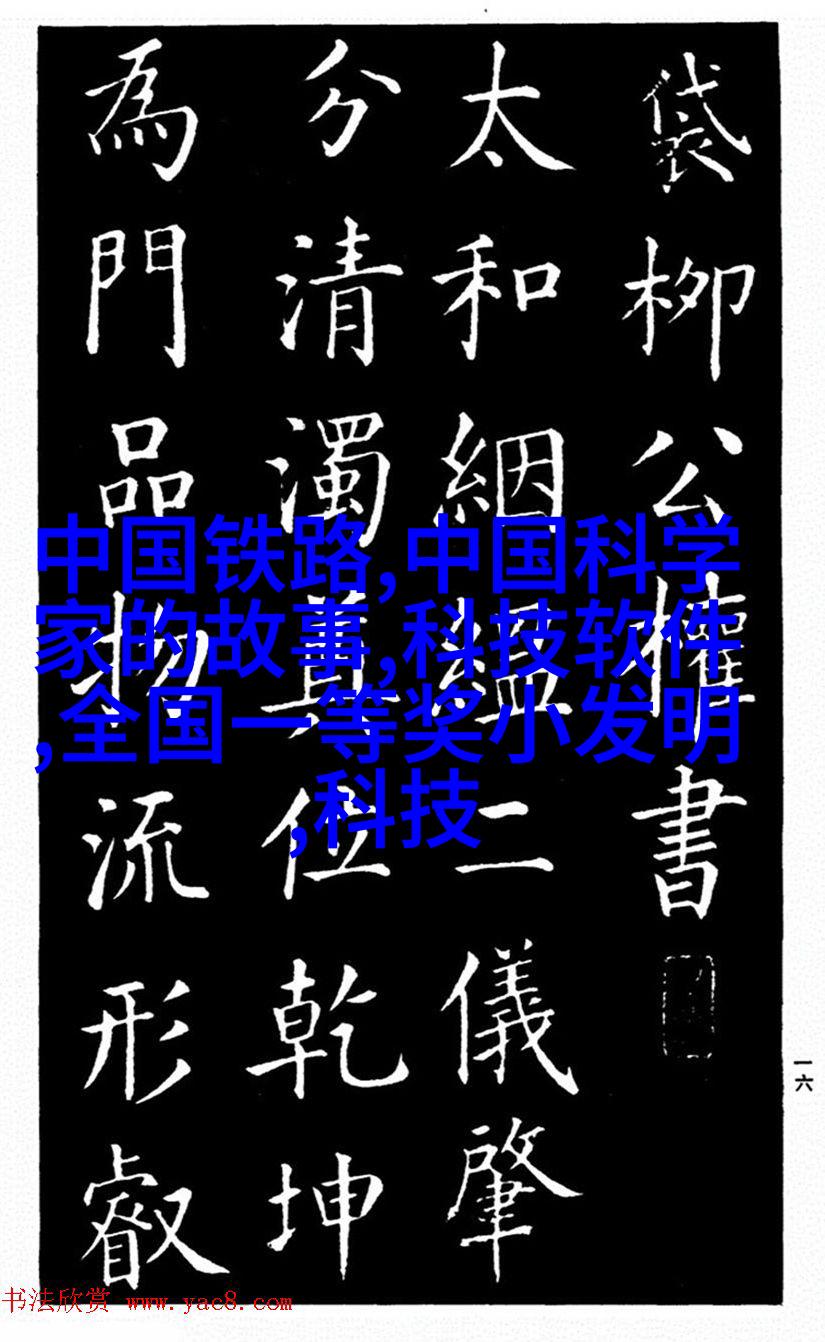 袋柳公權書
太和絪縕二儀肇
分清濁奠位乾坤
為門品物流形叡
中国铁路,中国科学
家的故事,科技软件
,全国一等奖小发明
,科技
一六
书法欣赏 www.yac8.com